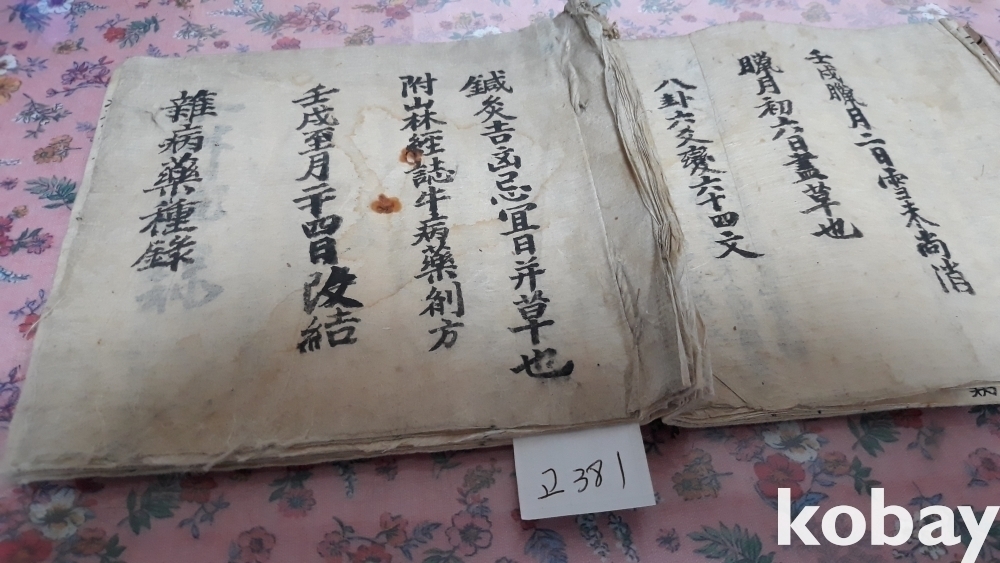 壬戌臘月二日雪未尚消
臘月初六日盡草也
八卦六爻變六十四文
鍼灸吉凶忌宜日并草也
附山林經誌牛病藥剤方
壬戌至月二十四日改結
雜病藥種錄
고381
kobay